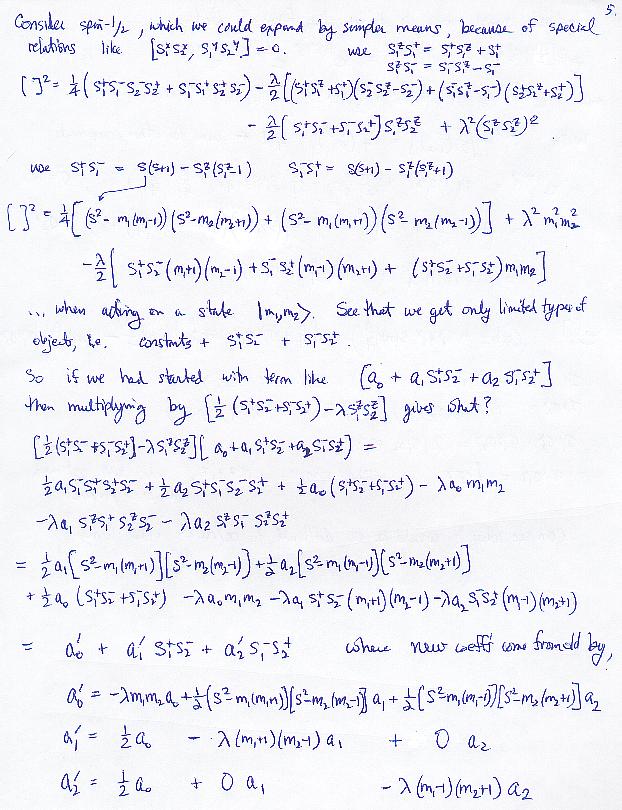 5.
Consider spin-1/2, which we could expand by simpler means, because of special
relations like [S₁ᶻS₂ᶻ, S₁ʸS₂ʸ] = 0. use S₁ᶻS₁⁺ = S₁⁺S₁ᶻ + S₁⁺
S₁ᶻS₁⁻ = S₁⁻S₁ᶻ - S₁⁻
[ ]² = ¼(S₁⁺S₁⁻S₂⁻S₂⁺ + S₁⁻S₁⁺S₂⁺S₂⁻) - λ/2[(S₁⁺S₁ᶻ+S₁⁺)(S₂⁻S₂ᶻ-S₂⁻) + (S₁⁻S₁ᶻ-S₁⁻)(S₂⁺S₂ᶻ+S₂⁺)]
- λ/2[S₁⁺S₂⁻+S₁⁻S₂⁺]S₁ᶻS₂ᶻ + λ²(S₁ᶻS₂ᶻ)²
use S₁⁺S₁⁻ = s(s+1) - S₁ᶻ(S₁ᶻ-1) S₁⁻S₁⁺ = s(s+1) - S₁ᶻ(S₁ᶻ+1)
[ ]² = ¼[(S² - m₁(m₁-1))(S²-m₂(m₂+1)) + (S²-m₁(m₁+1))(S²-m₂(m₂-1))] + λ² m₁²m₂²
-λ/2[ S₁⁺S₂⁻(m₁+1)(m₂-1) + S₁⁻S₂⁺(m₁-1)(m₂+1) + (S₁⁺S₂⁻+S₁⁻S₂⁺)m₁m₂]
... when acting on a state |m₁,m₂⟩. See that we get only limited types of
objects, i.e. constants + S₁⁺S₂⁻ + S₁⁻S₂⁺.
So if we had started with term like [a₀ + a₁S₁⁺S₂⁻ + a₂S₁⁻S₂⁺]
then multiplying by [½(S₁⁺S₂⁻+S₁⁻S₂⁺)-λS₁ᶻS₂ᶻ] gives what?
[½(S₁⁺S₂⁻+S₁⁻S₂⁺]-λS₁ᶻS₂ᶻ][a₀+a₁S₁⁺S₂⁻+a₂S₁⁻S₂⁺) =
½a₁S₁⁻S₁⁺S₂⁺S₂⁻ + ½a₂S₁⁺S₁⁻S₂⁻S₂⁺ + ½a₀(S₁⁺S₂⁻+S₁⁻S₂⁺) - λa₀m₁m₂
-λa₁ S₁ᶻS₁⁺S₂ᶻS₂⁻ - λa₂ S₁ᶻS₁⁻ S₂ᶻS₂⁺
= ½a₁[S²-m₁(m₁+1)][S²-m₂(m₂-1)] + ½a₂[S²-m₁(m₁-1)][S²-m₂(m₂+1)]
+ ½a₀(S₁⁺S₂⁻+S₁⁻S₂⁺) -λa₀m₁m₂ -λa₁ S₁⁺S₂⁻(m₁+1)(m₂-1) -λa₂S₁⁻S₂⁺(m₁-1)(m₂+1)
= a₀′ + a₁′ S₁⁺S₂⁻ + a₂′ S₁⁻S₂⁺ where new coeffs come from old by,
a₀′ = -λm₁m₂a₀ + ½[S²-m₁(m₁+1)][S²-m₂(m₂-1)] a₁ + ½[S²-m₁(m₁-1)][S²-m₂(m₂+1)] a₂
a₁′ = ½a₀ - λ(m₁+1)(m₂-1) a₁ + 0 a₂
a₂′ = ½a₀ + 0 a₁ - λ(m₁-1)(m₂+1) a₂